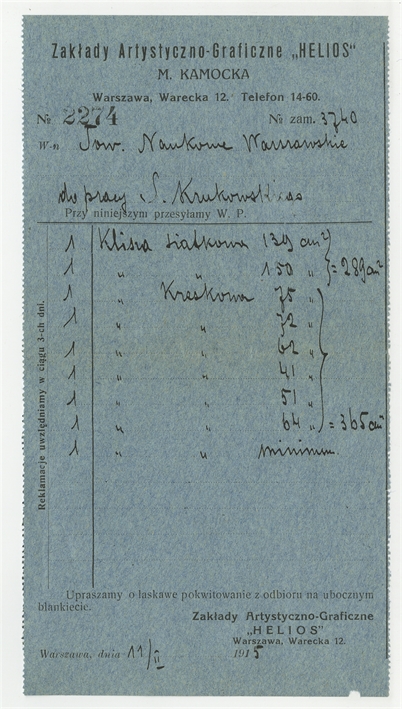 Zakłady Artystyczno-Graficzne „HELIOS"
M. KAMOCKA
Warszawa, Warecka 12. Telefon 14-60.
№ 2274 № zam. 3740
W-n Tow. Naukowe Warszawskie
do pracy S. Krukowskiego
Przy niniejszym przesyłamy W. P.
1 Klisza siatkowa 139 cm²
1 „ „ 150 „ = 289 cm²
1 „ Kreskowa 75 „
1 „ „ 72 „
1 „ „ 62 „
1 „ „ 41 „
1 „ „ 51 „
1 „ „ 64 „ = 365 cm²
1 „ „ minimum.
Reklamacje uwzlędniamy w ciągu 3-ch dni.
Upraszamy o łaskawe pokwitowanie z odbioru na ubocznym
blankiecie.
Zakłady Artystyczno-Graficzne
„HELIOS"
Warszawa, Warecka 12.
Warszawa, dnia 11/II 1915